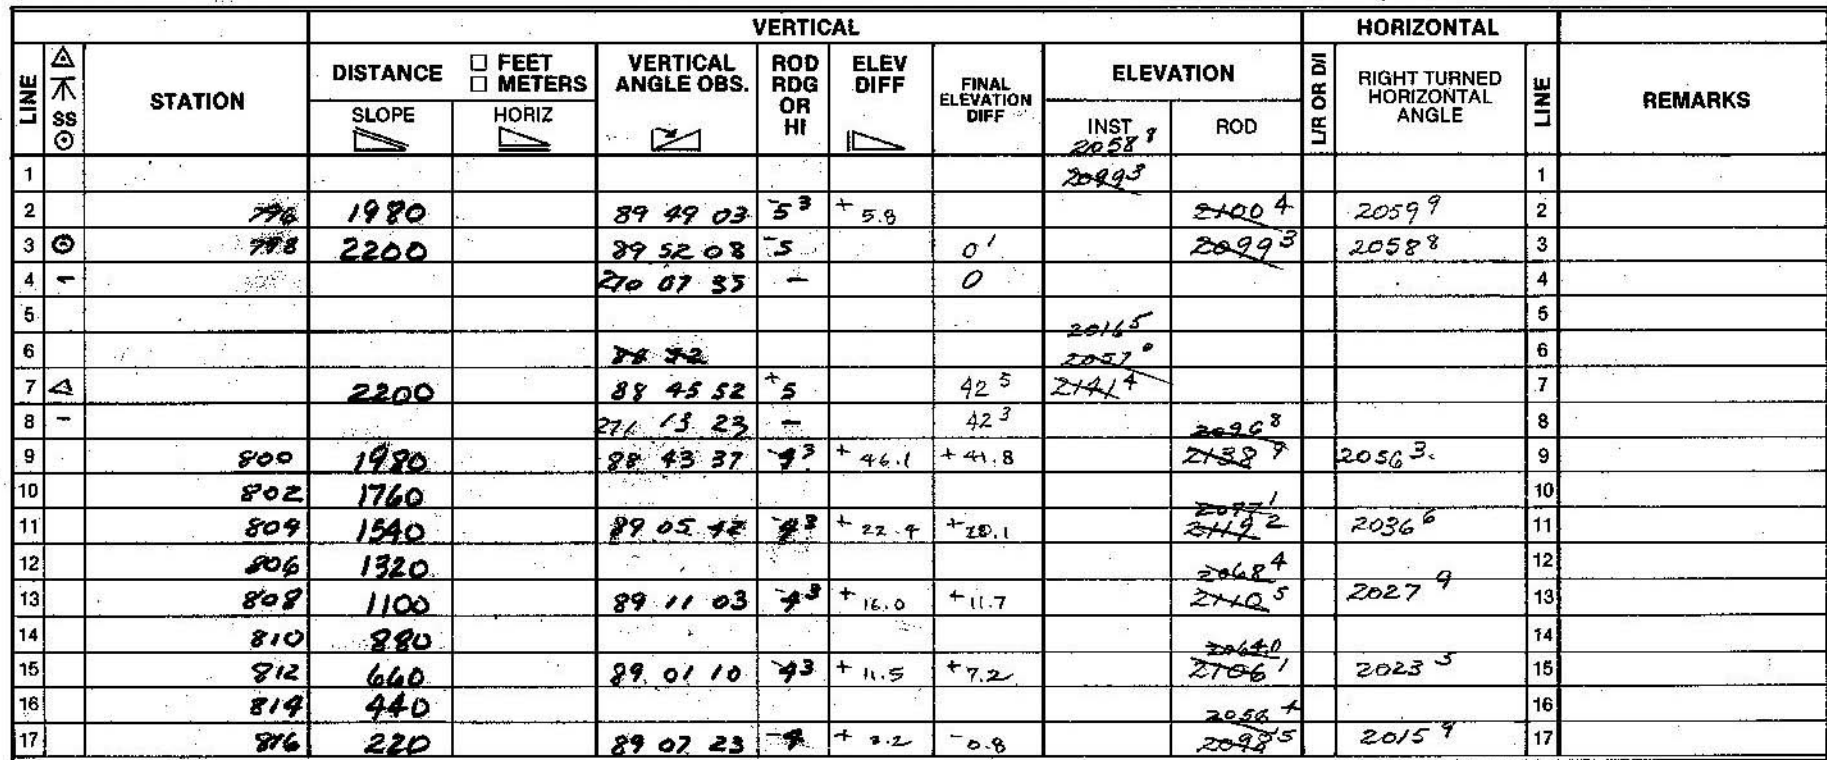 VERTICAL HORIZONTAL
LINE SS STATION DISTANCE □ FEET □ METERS VERTICAL ANGLE OBS. ROD RDG OR HI ELEV DIFF FINAL ELEVATION DIFF ELEVATION L/R OR D/I RIGHT TURNED HORIZONTAL ANGLE LINE REMARKS
SLOPE HORIZ INST ROD
2058 8
1 2099 3 1
2 796 1980 89 49 03 -5 3 + 5.8 2100 4 2059 9 2
3 798 2200 89 52 08 -5 0 1 2099 3 2058 8 3
4 - 270 07 35 - 0 4
5 2016 5 5
6 2057 0 6
7 2200 88 45 52 +5 42 5 2141 4 7
8 - 271 13 23 - 42 3 2096 8 8
9 800 1980 88 43 37 + 46.1 + 41.8 2138 9 2056 3. 9
10 802 1760 2077 1 10
11 804 1540 89 05 42 + 22.4 2119 2 2036 6 11
12 806 1320 2068 4 12
13 808 1100 89 11 03 -4 3 + 16.0 + 11.7 2110 5 2027 9 13
14 810 880 2064.0 14
15 812 660 89 01 10 -4 3 + 11.5 + 7.2 2106 1 2023 5 15
16 814 440 2056 4 16
17 816 220 89 07 23 -4 + 3.2 -0.8 2098 5 2015 9 17